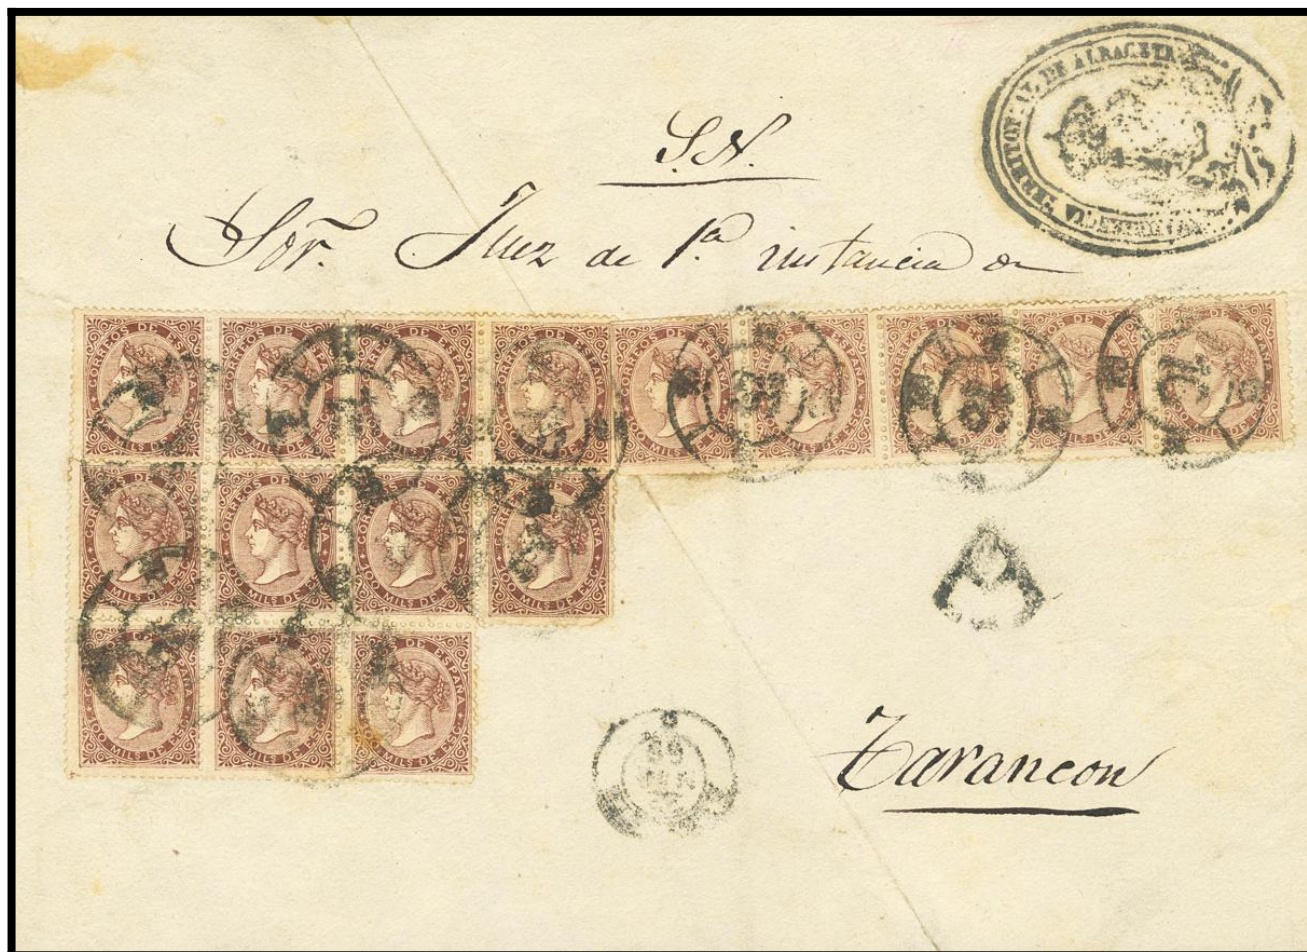 TERRITORIAL DE ALBACETE
S.N.
Sor. Juez de 1ª. instancia de
CORREOS DE ESPAÑA
100 MILS DE ESCO
Tarancon